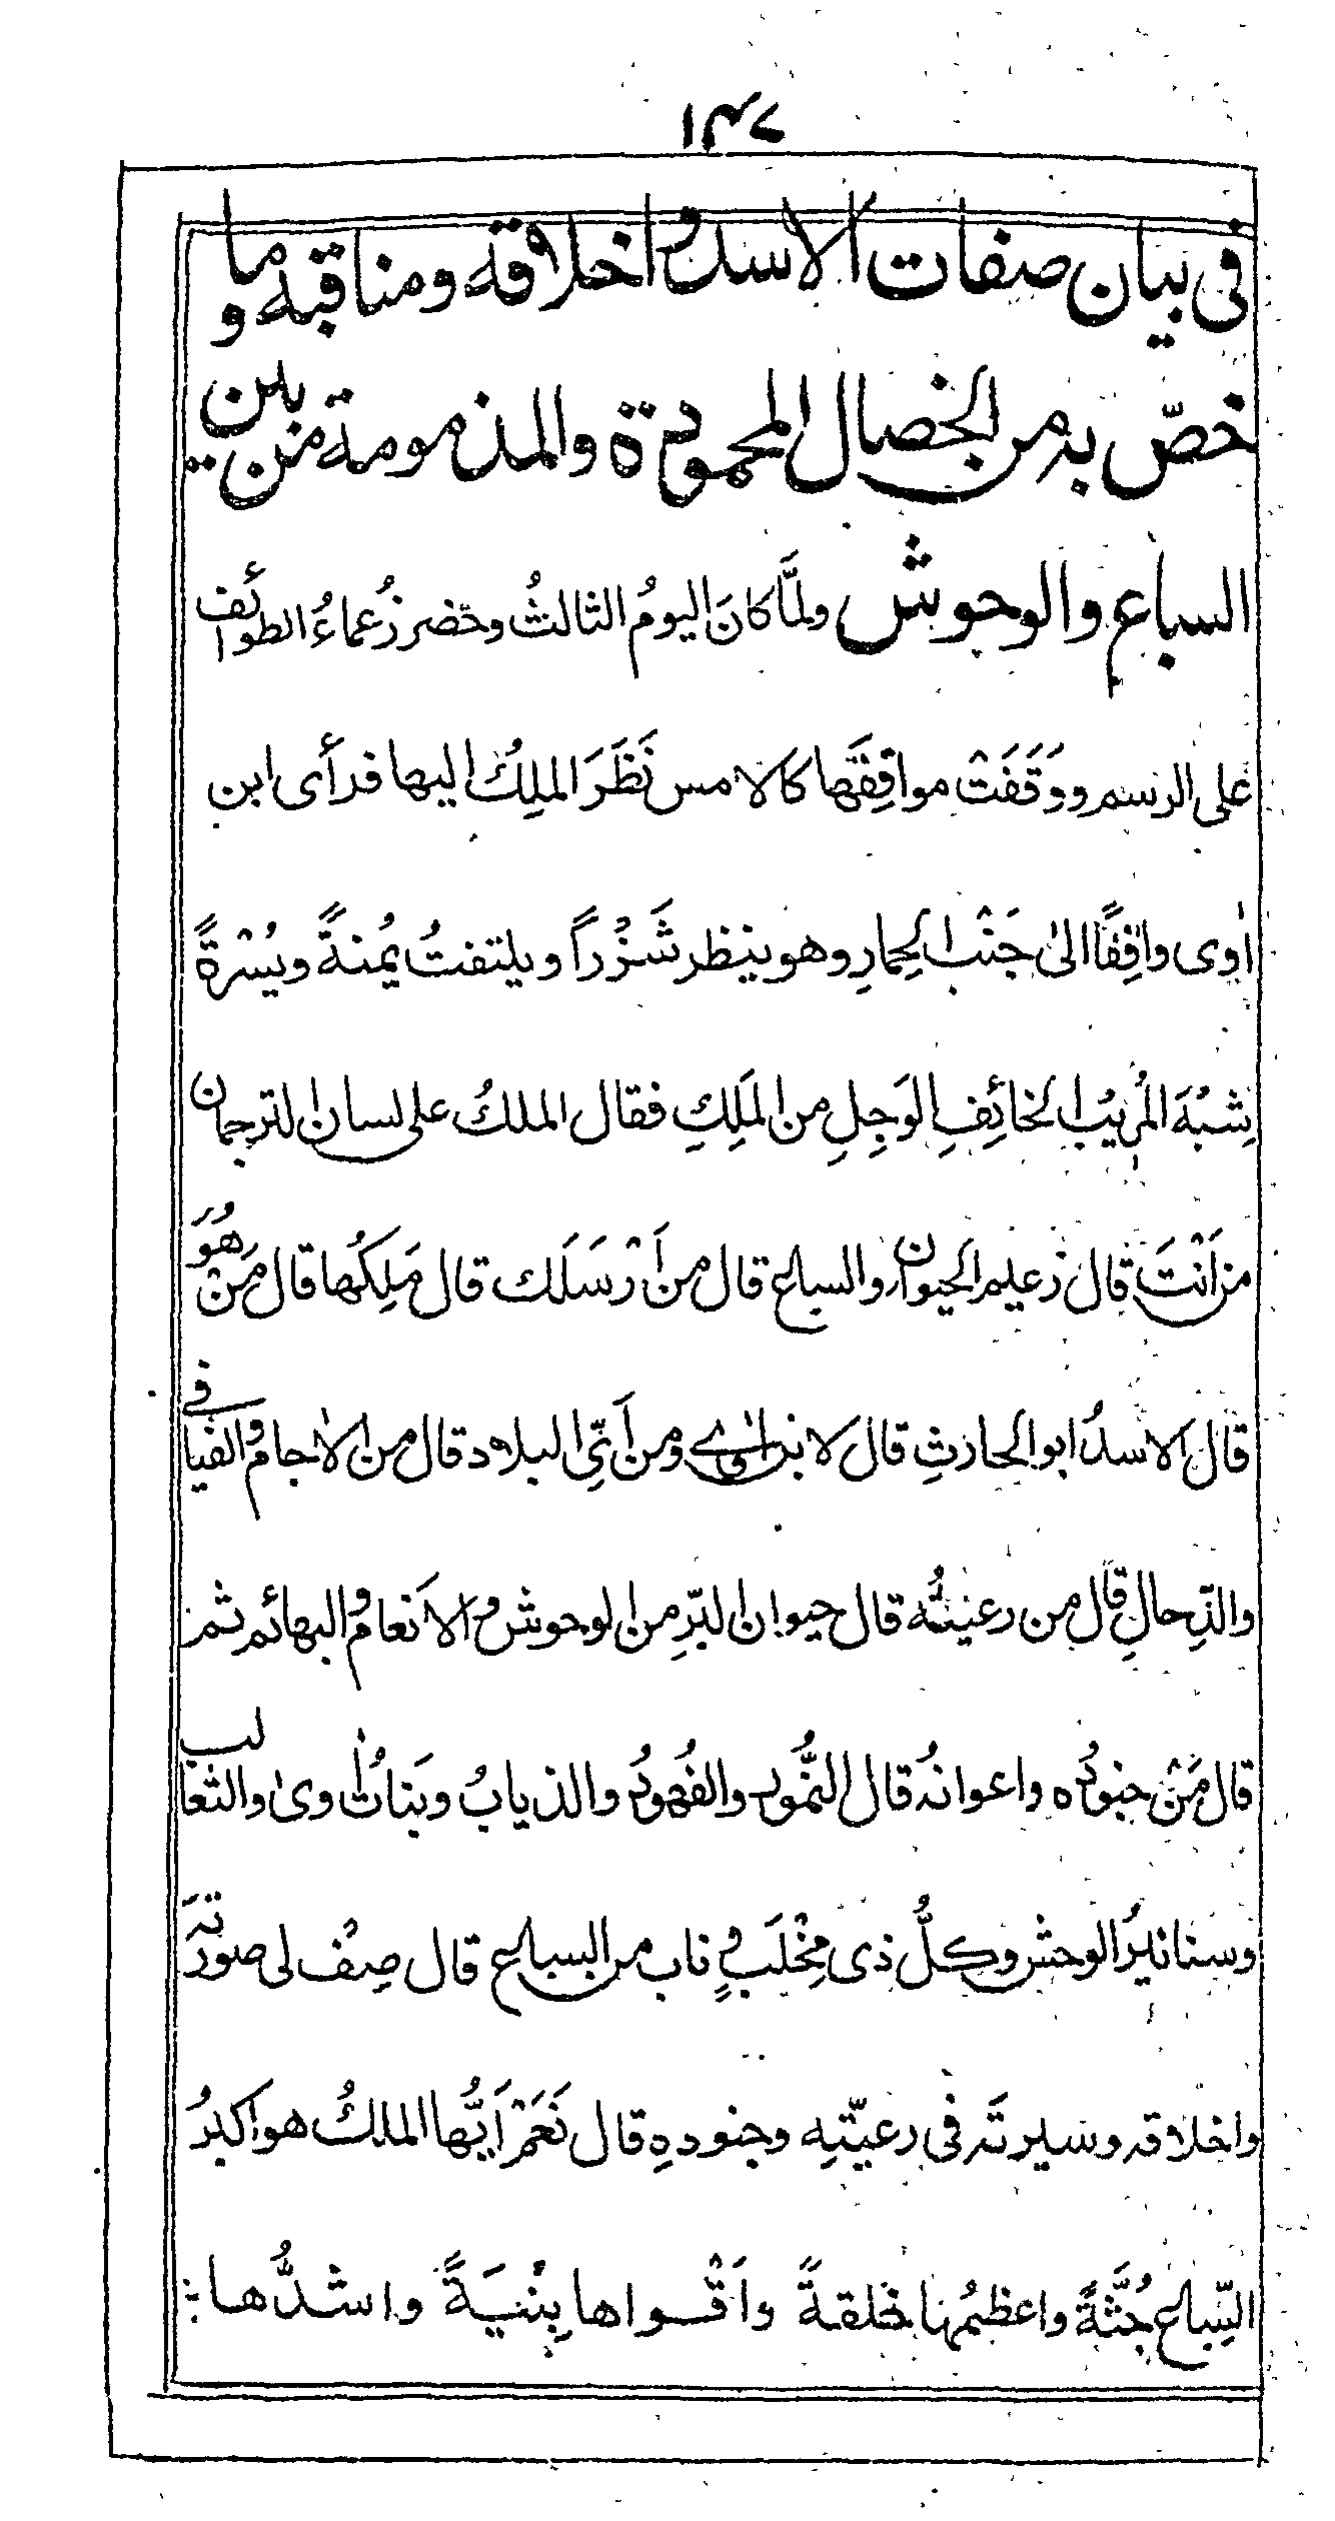 ١٤٧
فى بيان صفات الاسد واخلاقه ومناقبه وما
خصّ به من الخصال المحمودة والمذمومة من بين
السباع والوحوش ولمَّا كانَ اليومُ الثالثُ وحَضر زُعماءُ الطوائف
على الرسم ووَقَفَتْ مواقِفَها كالامس نَظَرَ الملِكُ اليها فرأى ابن
اٰوى واقِفًا الىٰ جَنْب الحِمارِ وهو ينظر شَزْراً ويلتفتُ يُمنةً ويُسْرةً
شِبْهَ المُريْب الخائِفِ الوَجِلِ من المَلِكِ فقال الملكُ على لسان الترجمان
من اَنْتَ قال زعيم الحيوان والسباع قال من اَرْسَلَك قال مَلِكُها قال مَنْ هُوَ
قال الاسدُ ابو الحارثِ قال لابن اٰوى ومن اَىِّ البلاد قال من الاٰجام والفيافى
والدِّحالِ قال من رعيتُّه قال حيوان البرِّ من الوحوش والاَنعام والبهائم ثم
قال مَنْ جنودُه واعوانُه قال النُّمور والفُهودُ والذيابُ وبَناتُ اٰوىٰ والثعالب
وسنانيرُ الوحش وكلُّ ذى مِخْلَبٍ وناب من السباع قال صِفْ لى صورتَه
واخلاقه وسيرتَه فى رعيّتِه وجنودهِ قال نَعَمْ اَيُّها الملكُ هو اكبرُ
السِّباع جُثَّةً واعظمُها خلقةً واَقْواها بِنْيَةً واشدُّها